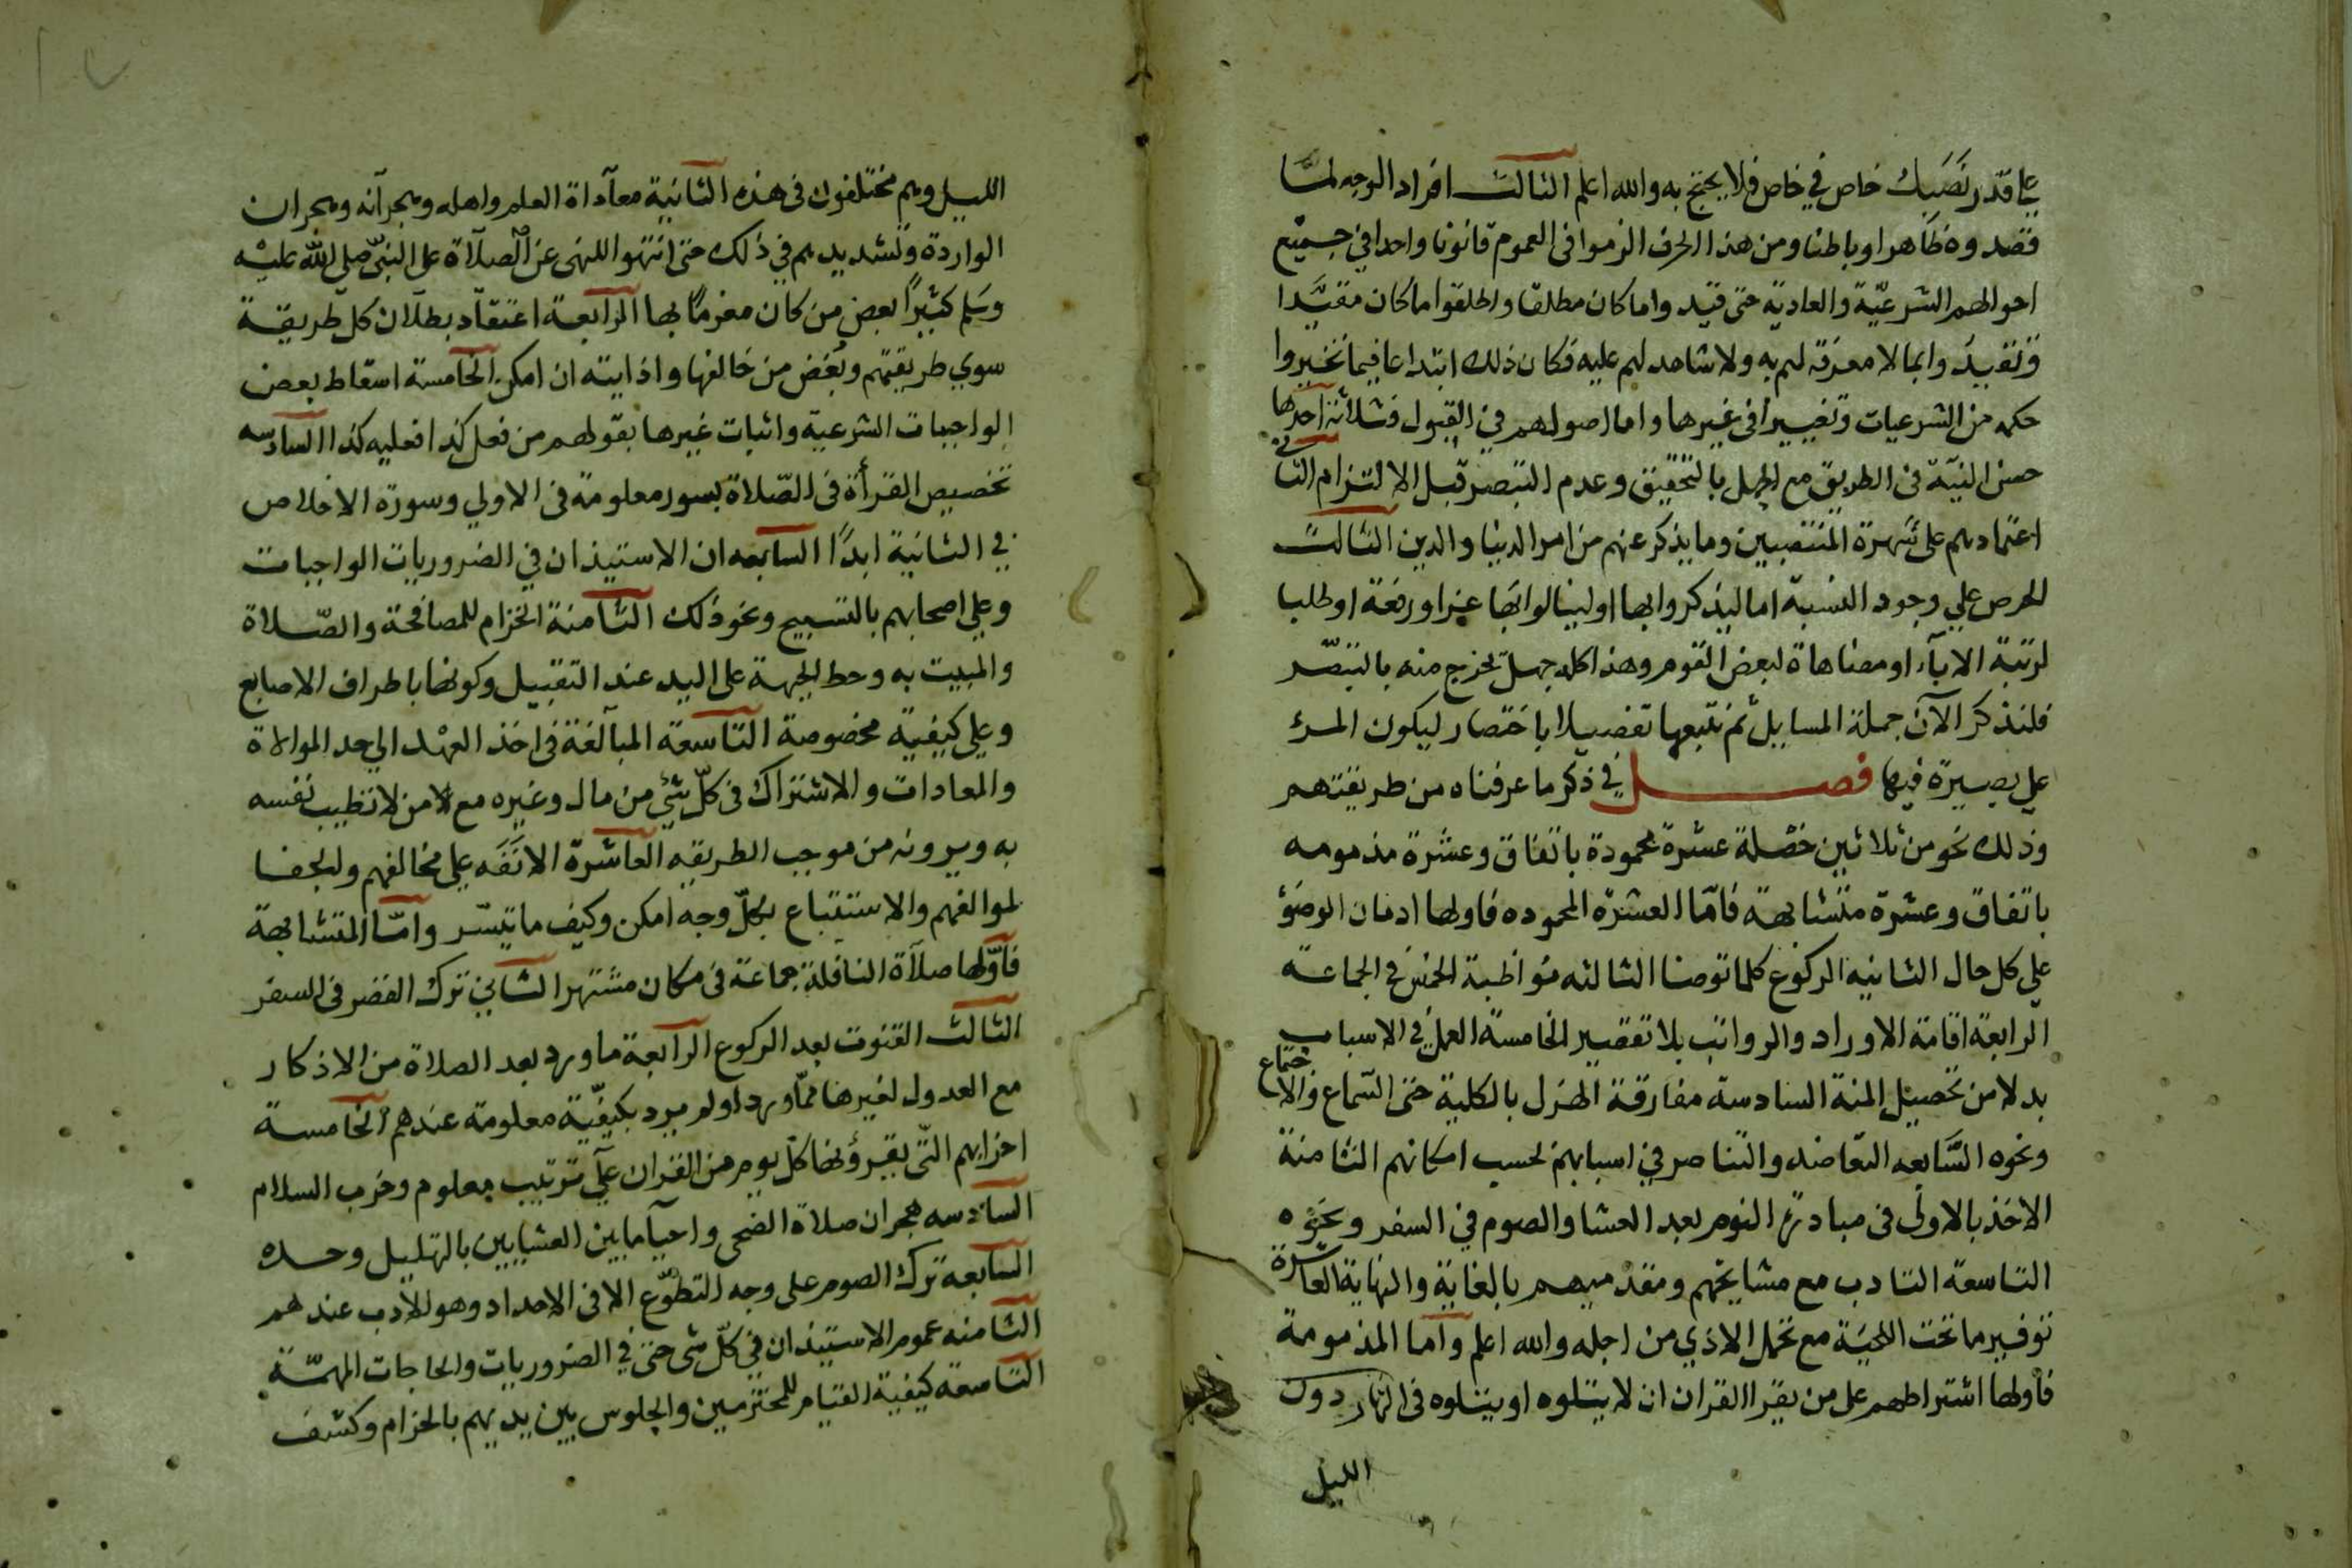 علي قدر نصبك خاص في خاص فلا يحتج به والله اعلم الثالث افراد الوجه لمّا
قصدوه ظاهرا وباطنا ومن هذا الحرف الزموا فى العموم قانونا واحدا في جميع
احوالهم الشرعيّة والعادية حتى قيدوا ما كان مطلقا واطلقوا ما كان مقيّدا
وتقيدوا بما لا معرفة لهم به ولا شاهد لهم عليه فكان ذلك ابتداعا فيما تخيروا
حكمه من الشرعيات وتغييرا فى غيرها واما اصولهم في القبول فثلاثة احدها
حسن النية فى الطريق مع الجهل بالتحقيق وعدم التبصر قبل الالتزام الثاني
اعتمادهم على شهرة المنتصبين وما يذكر عنهم من امر الدنيا والدين الثالث
الحرص علي وجود النسبة اما ليذكروا بها او لينالوا بها عزا ورفعة او طلبا
لرتبة الاباء او مضاهاة لبعض القوم وهذا كله جهل يخرج منه بالتبصّر
فلنذكر الآن جملة المسايل ثم نتبعها تفصيلا باختصار ليكون المرء
علي بصيرة فيها فصل في ذكر ما عرفناه من طريقتهم
وذلك نحو من ثلاثين خصلة عشرة محمودة باتفاق وعشرة مذمومه
باتفاق وعشرة متشابهة فامّا العشرة المحموده فاولها ادمان الوضؤ
علي كل حال الثانيه الركوع كلما توضا الثالثه مواظبة الخمس في الجماعة
الرابعة اقامة الاوراد والرواتب بلا تقصير الخامسة العمل في الاسباب
بدلا من تحصيل المنة السادسة مفارقة الهزل بالكلية حتى السماع والاجتماع
ونحوه السّابعه التعاضد والتناصر في اسبابهم بحسب امكانهم الثامنة
الاخذ بالاولى فى مبادرة النوم بعد العشا والصوم في السفر ونحوه
التاسعة التادب مع مشايخهم ومقدميهم بالغاية والنهاية العاشرة
توفير ما تحت اللحيَة مع تحمل الاذي من اجله والله اعلم واما المذمومة
فاولها اشتراطهم على من يقرا القران ان لا يتلوه او يتلوه فى النهار دون
الليل
الليل وهم مختلفون فى هذه الثانية معاداة العلم واهله وهجرانه وهجران
الواردة وتشديدهم في ذلك حتى انتهوا للنهى عن الصلاة على النبيّ صلى الله عليه
وسلم كثيرًا بعض من كان مغرمًا بها الرابعة اعتقاد بطلان كل طريقة
سوي طريقتهم وبغض من خالفها واذايته ان امكن الخامسة اسقاط بعض
الواجبات الشرعية واثبات غيرها بقولهم من فعل كذا فعليه كذا السادسه
تخصيص القرأة فى الصّلاة بسور معلومة فى الاولي وسورة الاخلاص
في الثانية ابدًا السابعه ان الاستيذان في الضروريات الواجبات
وعلي اصحابهم بالتسبيح ونحو ذلك الثامنة الحزام للمصافحة والصّلاة
والمبيت به وحط الجبهة على اليد عند التقبيل وكونها باطراف الاصابع
وعلي كيفية مخصوصة التاسعة المبالغة فى اخذ العهد الي حد الموالاة
والمعادات والاشتراك فى كلّ شئ من مال وغيره مع من لا تطيب نفسه
به ويرونه من موجب الطريقه العاشرة الانَفَه علي مخالفهم والجفا
لموالفهم والاستتباع بكلّ وجه امكن وكيف ما تيسّر وامّا المتشابهة
فاوّلها صلاة النافلة جماعة فى مكان مشتهر الثاني ترك القصر فى السفر
الثالث القنوت بعد الركوع الرابعة ما ورد بعد الصلاة من الاذكار
مع العدول لغيرها ممّا ورد او لم يرد بكيفيّة معلومة عندهم الخامسة
احزابهم التّي يقرؤنها كلّ يوم من القران علي ترتيب معلوم وحزب السلام
السادسه هجران صلاة الضحى واحيا ما بين العشايين بالتهليل وحده
السابعة ترك الصوم على وجه التطوّع الا فى الاحداد وهو للادب عندهم
الثامنه عموم الاستيذان في كلّ شى حتى في الضروريات والحاجات المهمّة
التاسعة كيفية القيام للمحترمين والجلوس بين يديهم بالحزام وكشف